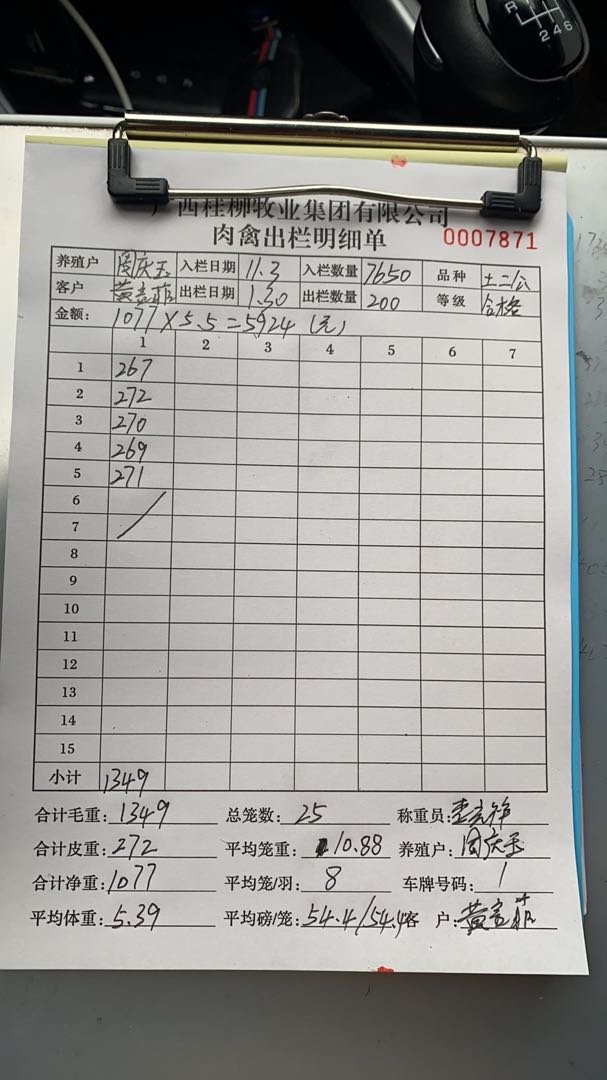 R 2 4 6
广西桂柳牧业集团有限公司
肉禽出栏明细单 0007871
养殖户 周庆玉 入栏日期 11.3 入栏数量 7650 品种 土二公
客户 出栏日期 1.30 出栏数量 200 等级 合格
金额: 1077×5.5=5924(元)
1 2 3 4 5 6 7
1 267
2 272
3 270
4 269
5 271
6
7
8
9
10
11
12
13
14
15
小计 1349
合计毛重: 1349 总笼数: 25 称重员:
合计皮重: 272 平均笼重: 10.88 养殖户: 周庆玉
合计净重: 1077 平均笼/羽: 8 车牌号码: 1
平均体重: 5.39 平均磅/笼: 54.4/54.4 客 户: